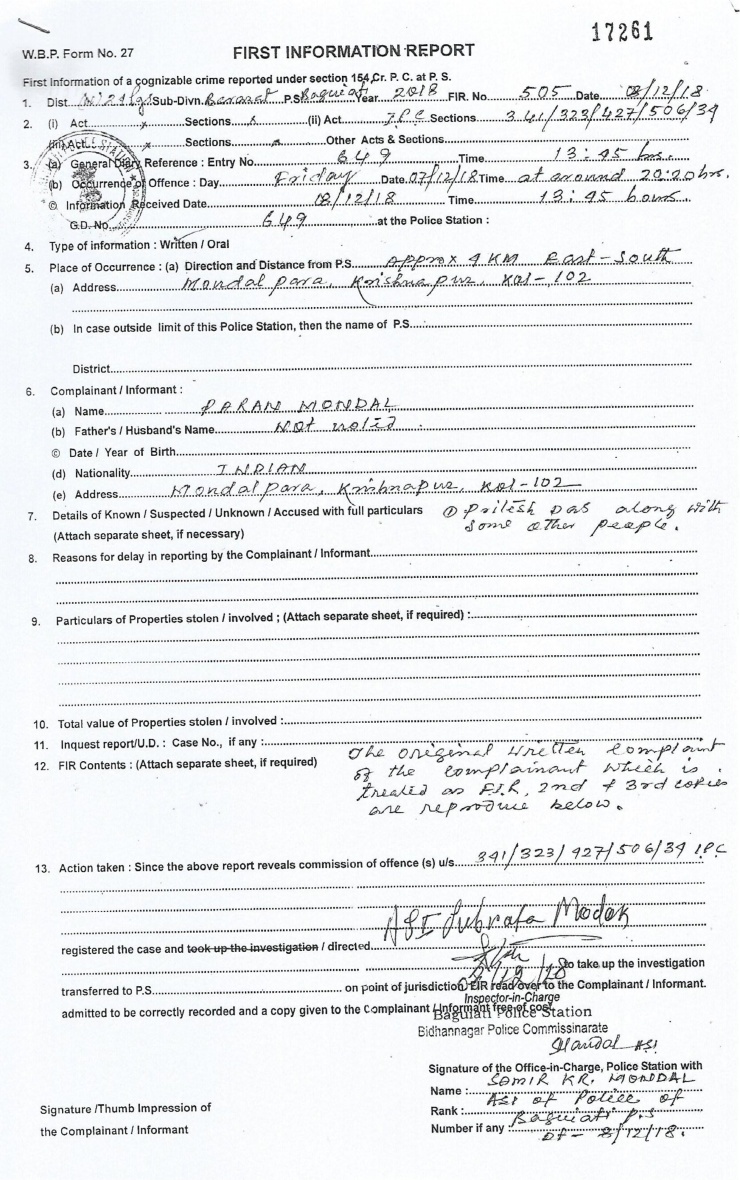 17261
W.B.P. Form No. 27
FIRST INFORMATION REPORT
First Information of a cognizable crime reported under section 154,Cr. P. C. at P. S.
1. Dist. Sub-Divn. Barasat P.S Baguiati Year 2018 FIR. No. 505 Date 08/12/18
2. (i) Act x Sections x (ii) Act I.P.C Sections 341/323/427/506/34
(iii) Act x Sections x Other Acts & Sections
3. (a) General Diary Reference : Entry No. 649 Time 13:45 hrs.
(b) Occurrence of Offence : Day Friday Date 07/12/18 Time at around 20:20 hrs.
© Information Received Date 08/12/18 13:45 hours
G.D. No. 649 at the Police Station :
4. Type of information : Written / Oral
5. Place of Occurrence : (a) Direction and Distance from P.S. Approx 4 KM East-South
(a) Address Mondal para, Krishnapur, Kol-102
(b) In case outside limit of this Police Station, then the name of P.S.
District
6. Complainant / Informant :
(a) Name PARAN MONDAL
(b) Father's / Husband's Name Not noted
© Date / Year of Birth
(d) Nationality INDIAN
(e) Address Mondal para, Krishnapur, Kol-102
7. Details of Known / Suspected / Unknown / Accused with full particulars ① Pritesh Das along with
(Attach separate sheet, if necessary) some other people.
8. Reasons for delay in reporting by the Complainant / Informant
9. Particulars of Properties stolen / involved ; (Attach separate sheet, if required) :
10. Total value of Properties stolen / involved :
11. Inquest report/U.D. : Case No., if any :
12. FIR Contents : (Attach separate sheet, if required) The original written complaint
of the complainant which is
treated as F.I.R, 2nd & 3rd copies
are reproduce below.
13. Action taken : Since the above report reveals commission of offence (s) u/s. 341/323/427/506/34 IPC
ASI Subrata Modak
registered the case and took up the investigation / directed
to take up the investigation
transferred to P.S. on point of jurisdiction FIR read over to the Complainant / Informant.
Inspector-in-Charge
admitted to be correctly recorded and a copy given to the Complainant / Informant free of cost.
Baguiati Police Station
Bidhannagar Police Commissinarate
ASI
Signature of the Office-in-Charge, Police Station with
Name : SAMIR KR. MONDAL
Rank : ASI of Police of
Number if any : Baguiati P.S
Dt- 8/12/18.
Signature /Thumb Impression of
the Complainant / Informant